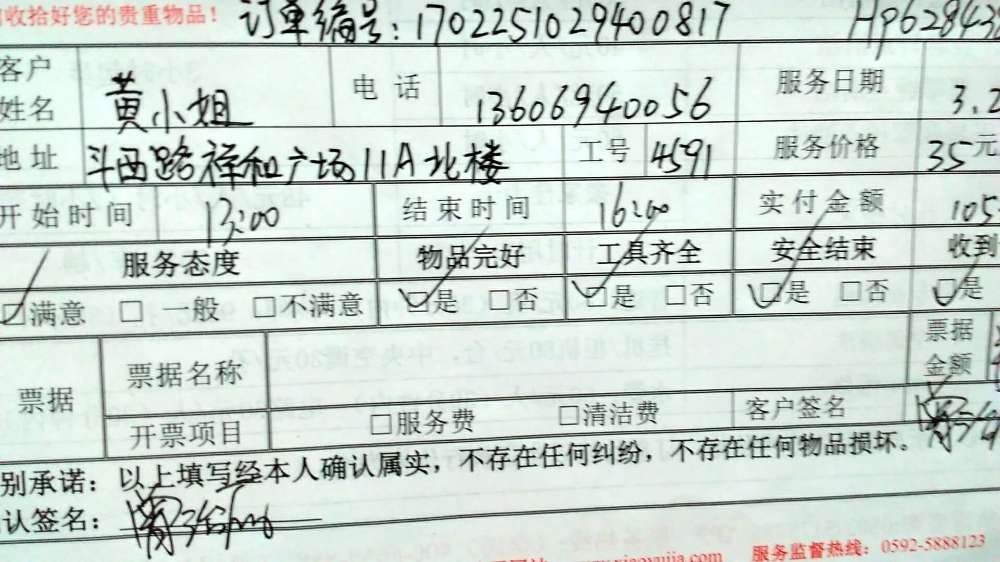 收拾好您的贵重物品！ 订单编号：1702251029400817 HP628438
客户姓名 黄小姐 电话 13606940056 服务日期 3.2
地址 斗西路祥和广场11A北楼 工号 4591 服务价格 35元
开始时间 13:00 结束时间 16:00 实付金额 105
服务态度 物品完好 工具齐全 安全结束 收到
☑满意 □一般 □不满意 ☑是 □否 ☑是 □否 ☑是 □否 ☑是
票据 票据名称 票据金额
开票项目 □服务费 □清洁费 客户签名
别承诺：以上填写经本人确认属实，不存在任何纠纷，不存在任何物品损坏。
认签名：
www.xiaoyujia.com 服务监督热线：0592-5888123